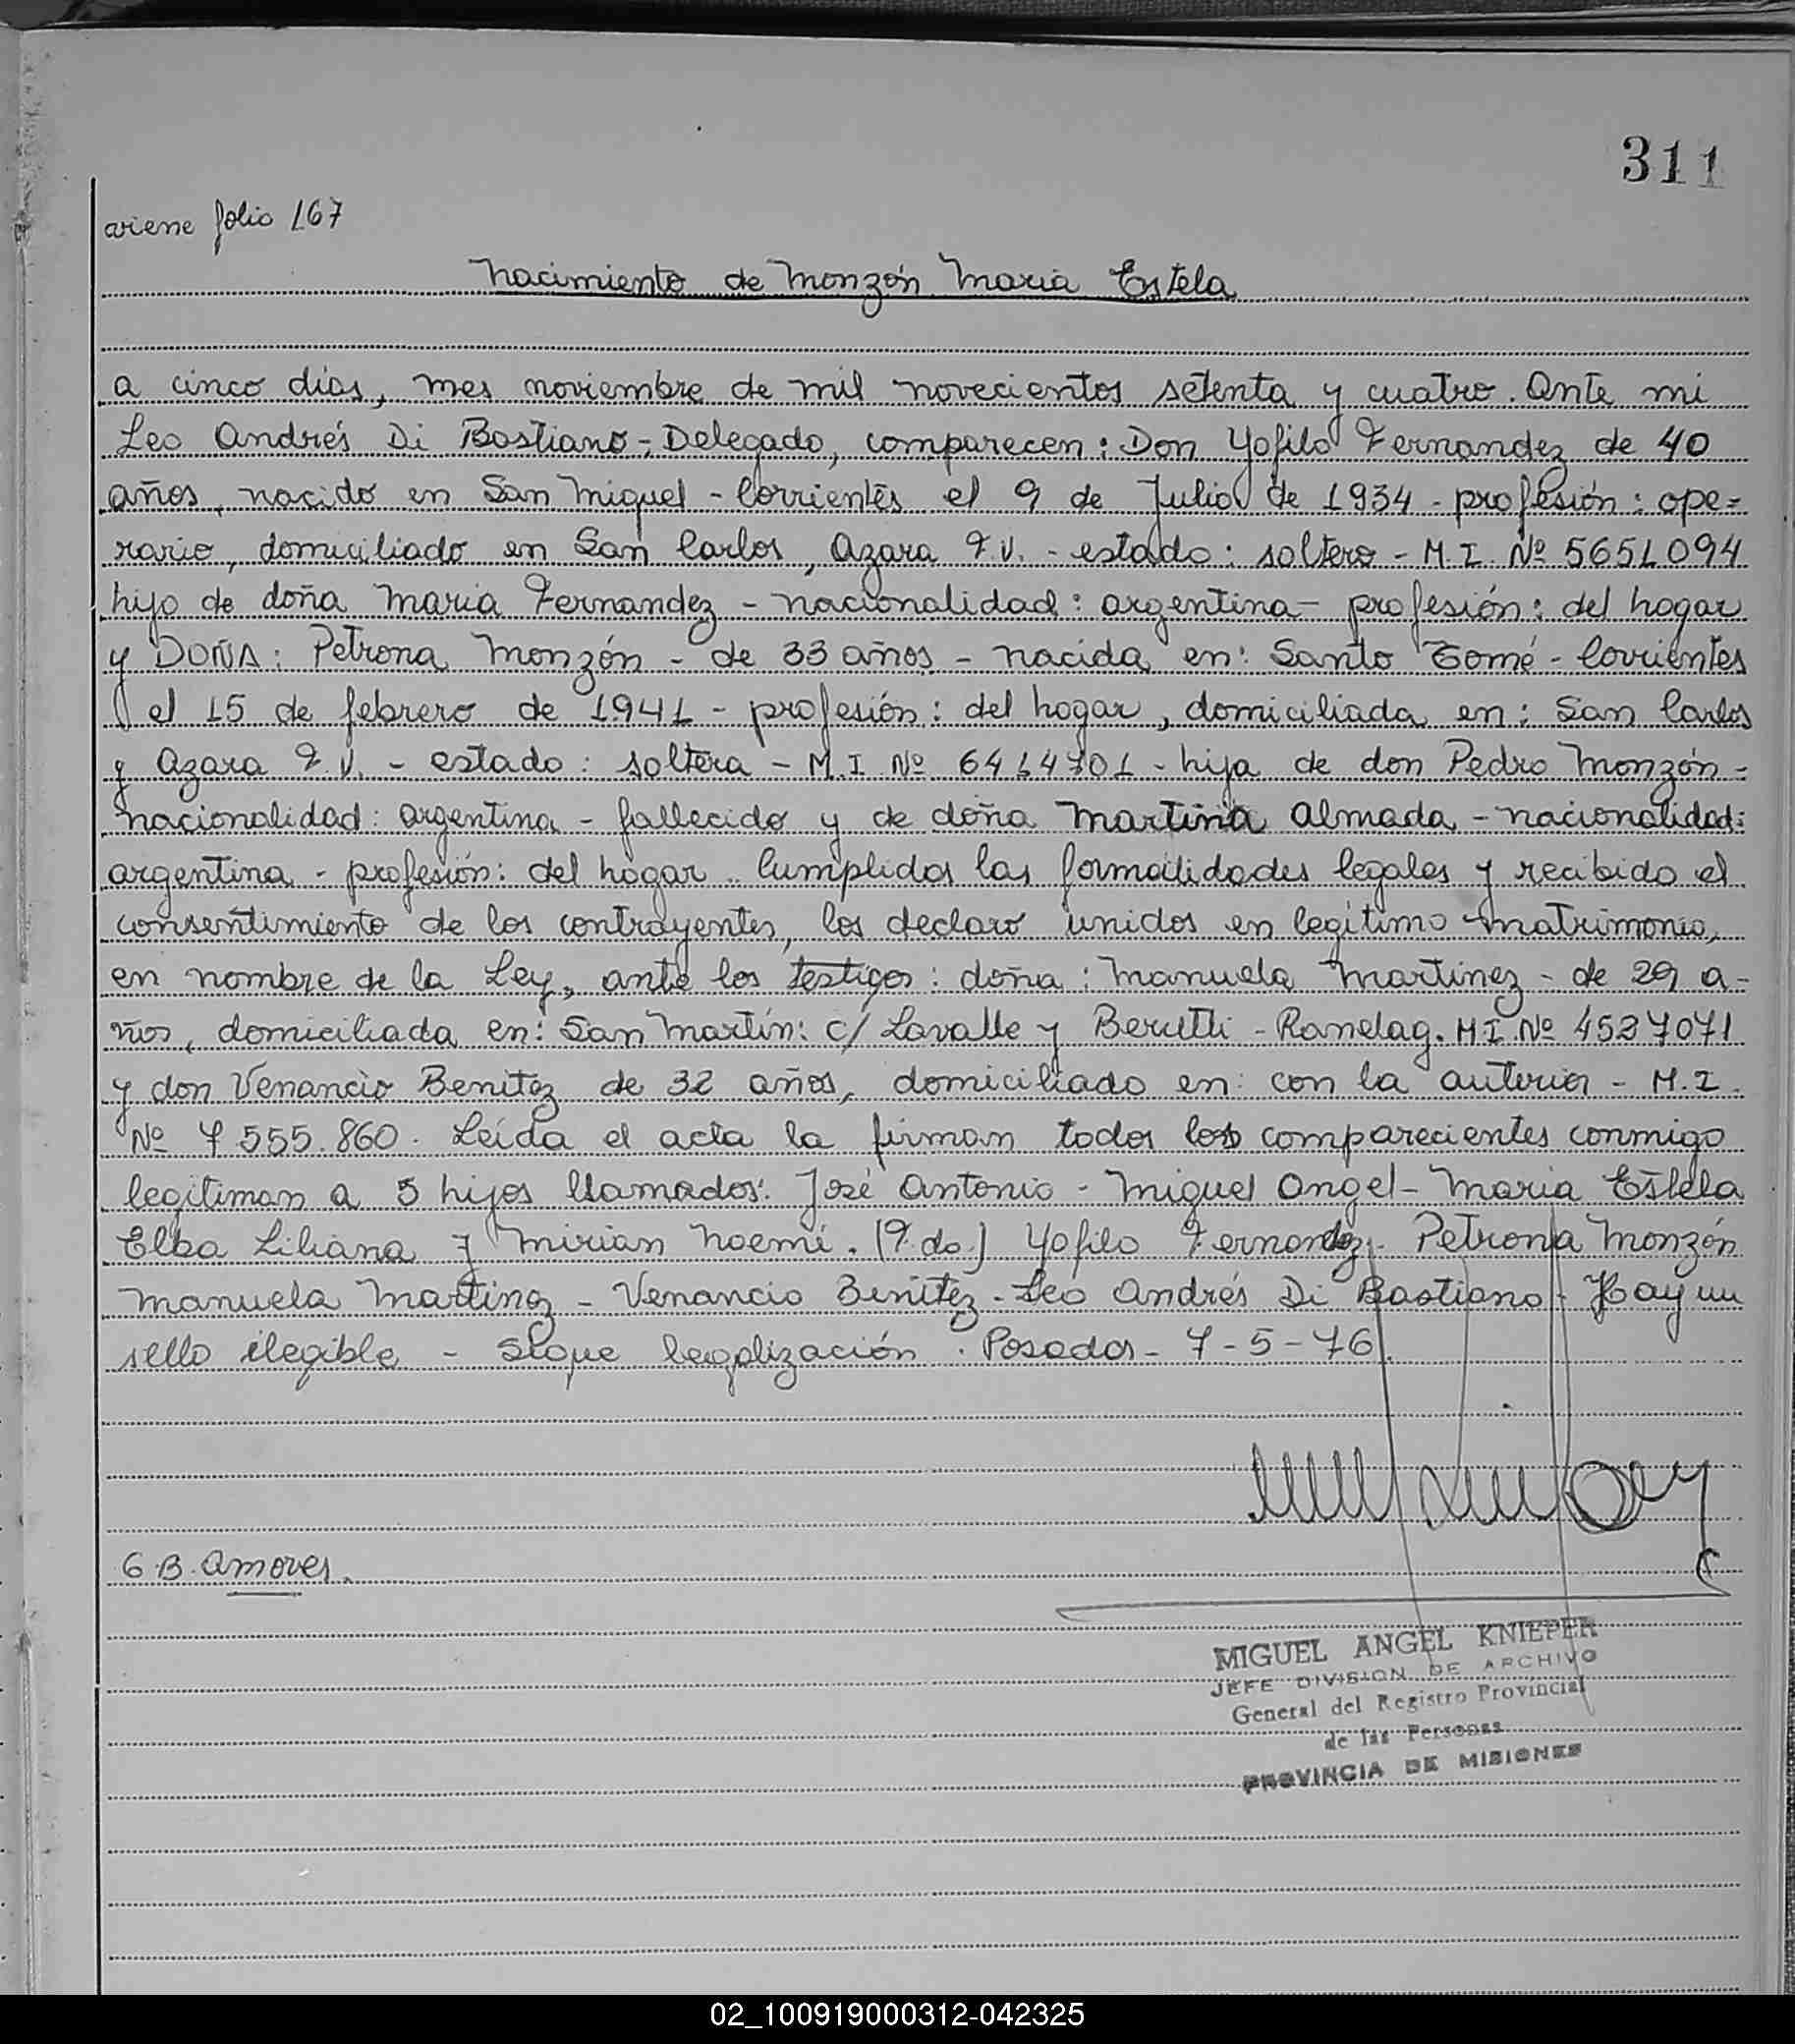 311
viene folio 167
Nacimiento de Monzón Maria Estela
a cinco días, mes noviembre de mil novecientos setenta y cuatro. Ante mi
Leo Andrés Di Bastiano-, Delegado, comparecen: Don Yofilo Fernandez de 40
años, nacido en San Miguel - Corrientes el 9 de Julio de 1934 - profesión: ope=
rario, domiciliado en San Carlos, Azara F.V. - estado: soltero - M.I. Nº 5651094
hijo de doña Maria Fernandez - nacionalidad: argentina - profesión: del hogar
y DOÑA: Petrona Monzón - de 33 años - nacida en: Santo Tomé - Corrientes
el 15 de febrero de 1941 - profesión: del hogar, domiciliada en: San Carlos
y Azara F.V. - estado: soltera - M.I. Nº 6414701 - hija de don Pedro Monzón -
nacionalidad: argentina - fallecido y de doña Martina Almada - nacionalidad:
argentina - profesión: del hogar. Cumplidas las formalidades legales y recibido el
consentimiento de los contrayentes, los declaro unidos en legítimo matrimonio,
en nombre de la Ley, ante los testigos: doña: Manuela Martinez - de 29 a-
ños, domiciliada en: San Martín: c/ Lavalle y Berutti - Ranelag. M.I. Nº 4537071
y don Venancio Benitez de 32 años, domiciliado en: con la anterior - M.I.
Nº 7.555.860. Leída el acta la firman todos los comparecientes conmigo
legitiman a 5 hijos llamados: José Antonio - Miguel Angel - Maria Estela
Elba Liliana y Mirian Noemí. (F.do.) Yofilo Fernandez - Petrona Monzón
Manuela Martinez - Venancio Benitez - Leo Andrés Di Bastiano - Hay un
sello ilegible - Sigue legalización. Posadas - 7-5-76.
G.B. Amores.
MIGUEL ANGEL KNIEPER
JEFE DIVISION DE ARCHIVO
General del Registro Provincial
de las Personas
PROVINCIA DE MISIONES
02_100919000312-042325